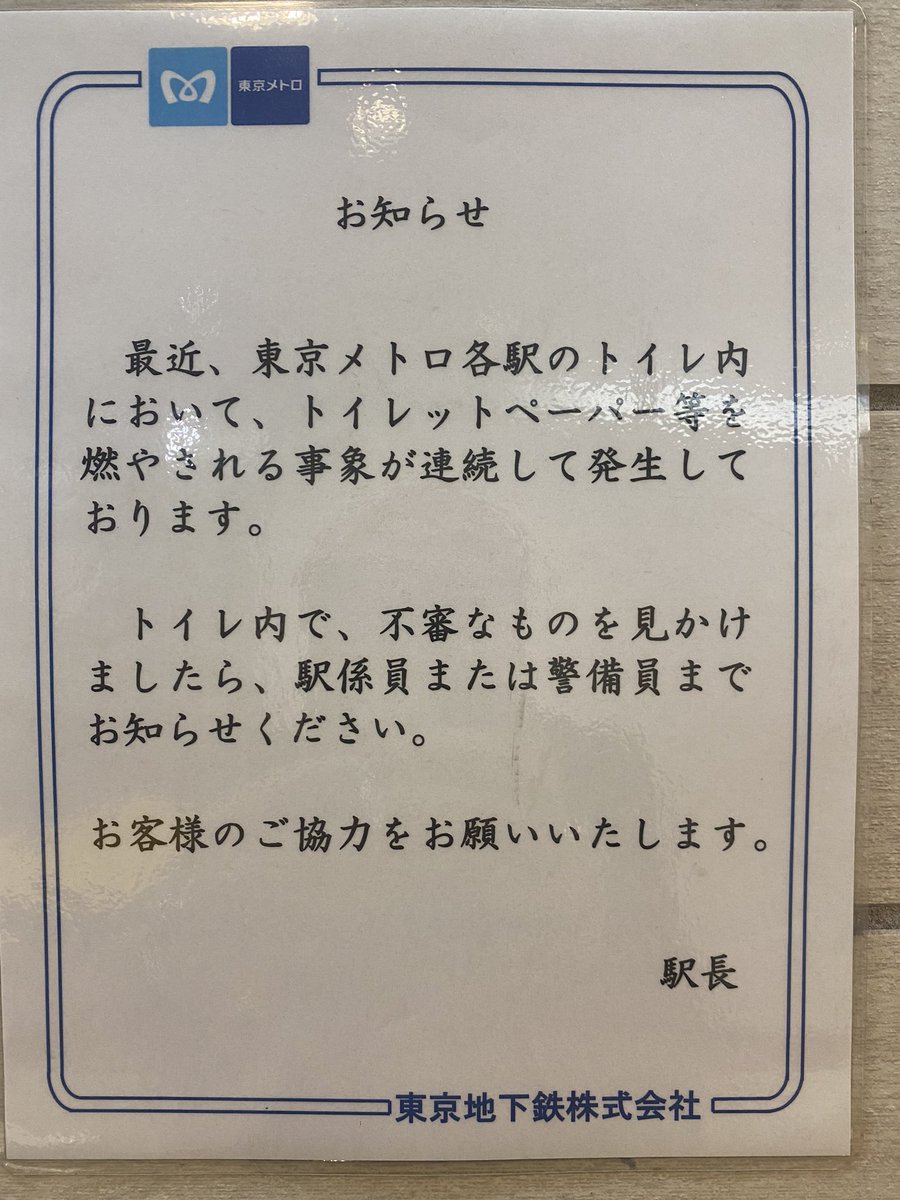 東京メトロ
お知らせ
最近、東京メトロ各駅のトイレ内
において、トイレットペーパー等を
燃やされる事象が連続して発生して
おります。
トイレ内で、不審なものを見かけ
ましたら、駅係員または警備員まで
お知らせください。
お客様のご協力をお願いいたします。
駅長
東京地下鉄株式会社